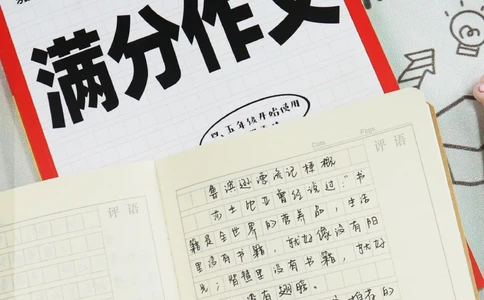 满分作文
四、五年级开始使用
Date
Page
评语
评语
鲁滨逊漂流记梗概
莎士比亚曾经说过:“书
籍是全世界的营养品,生活
里没有书籍,就好像没有阳
光;智慧里没有书籍,就好
有翅膀
的